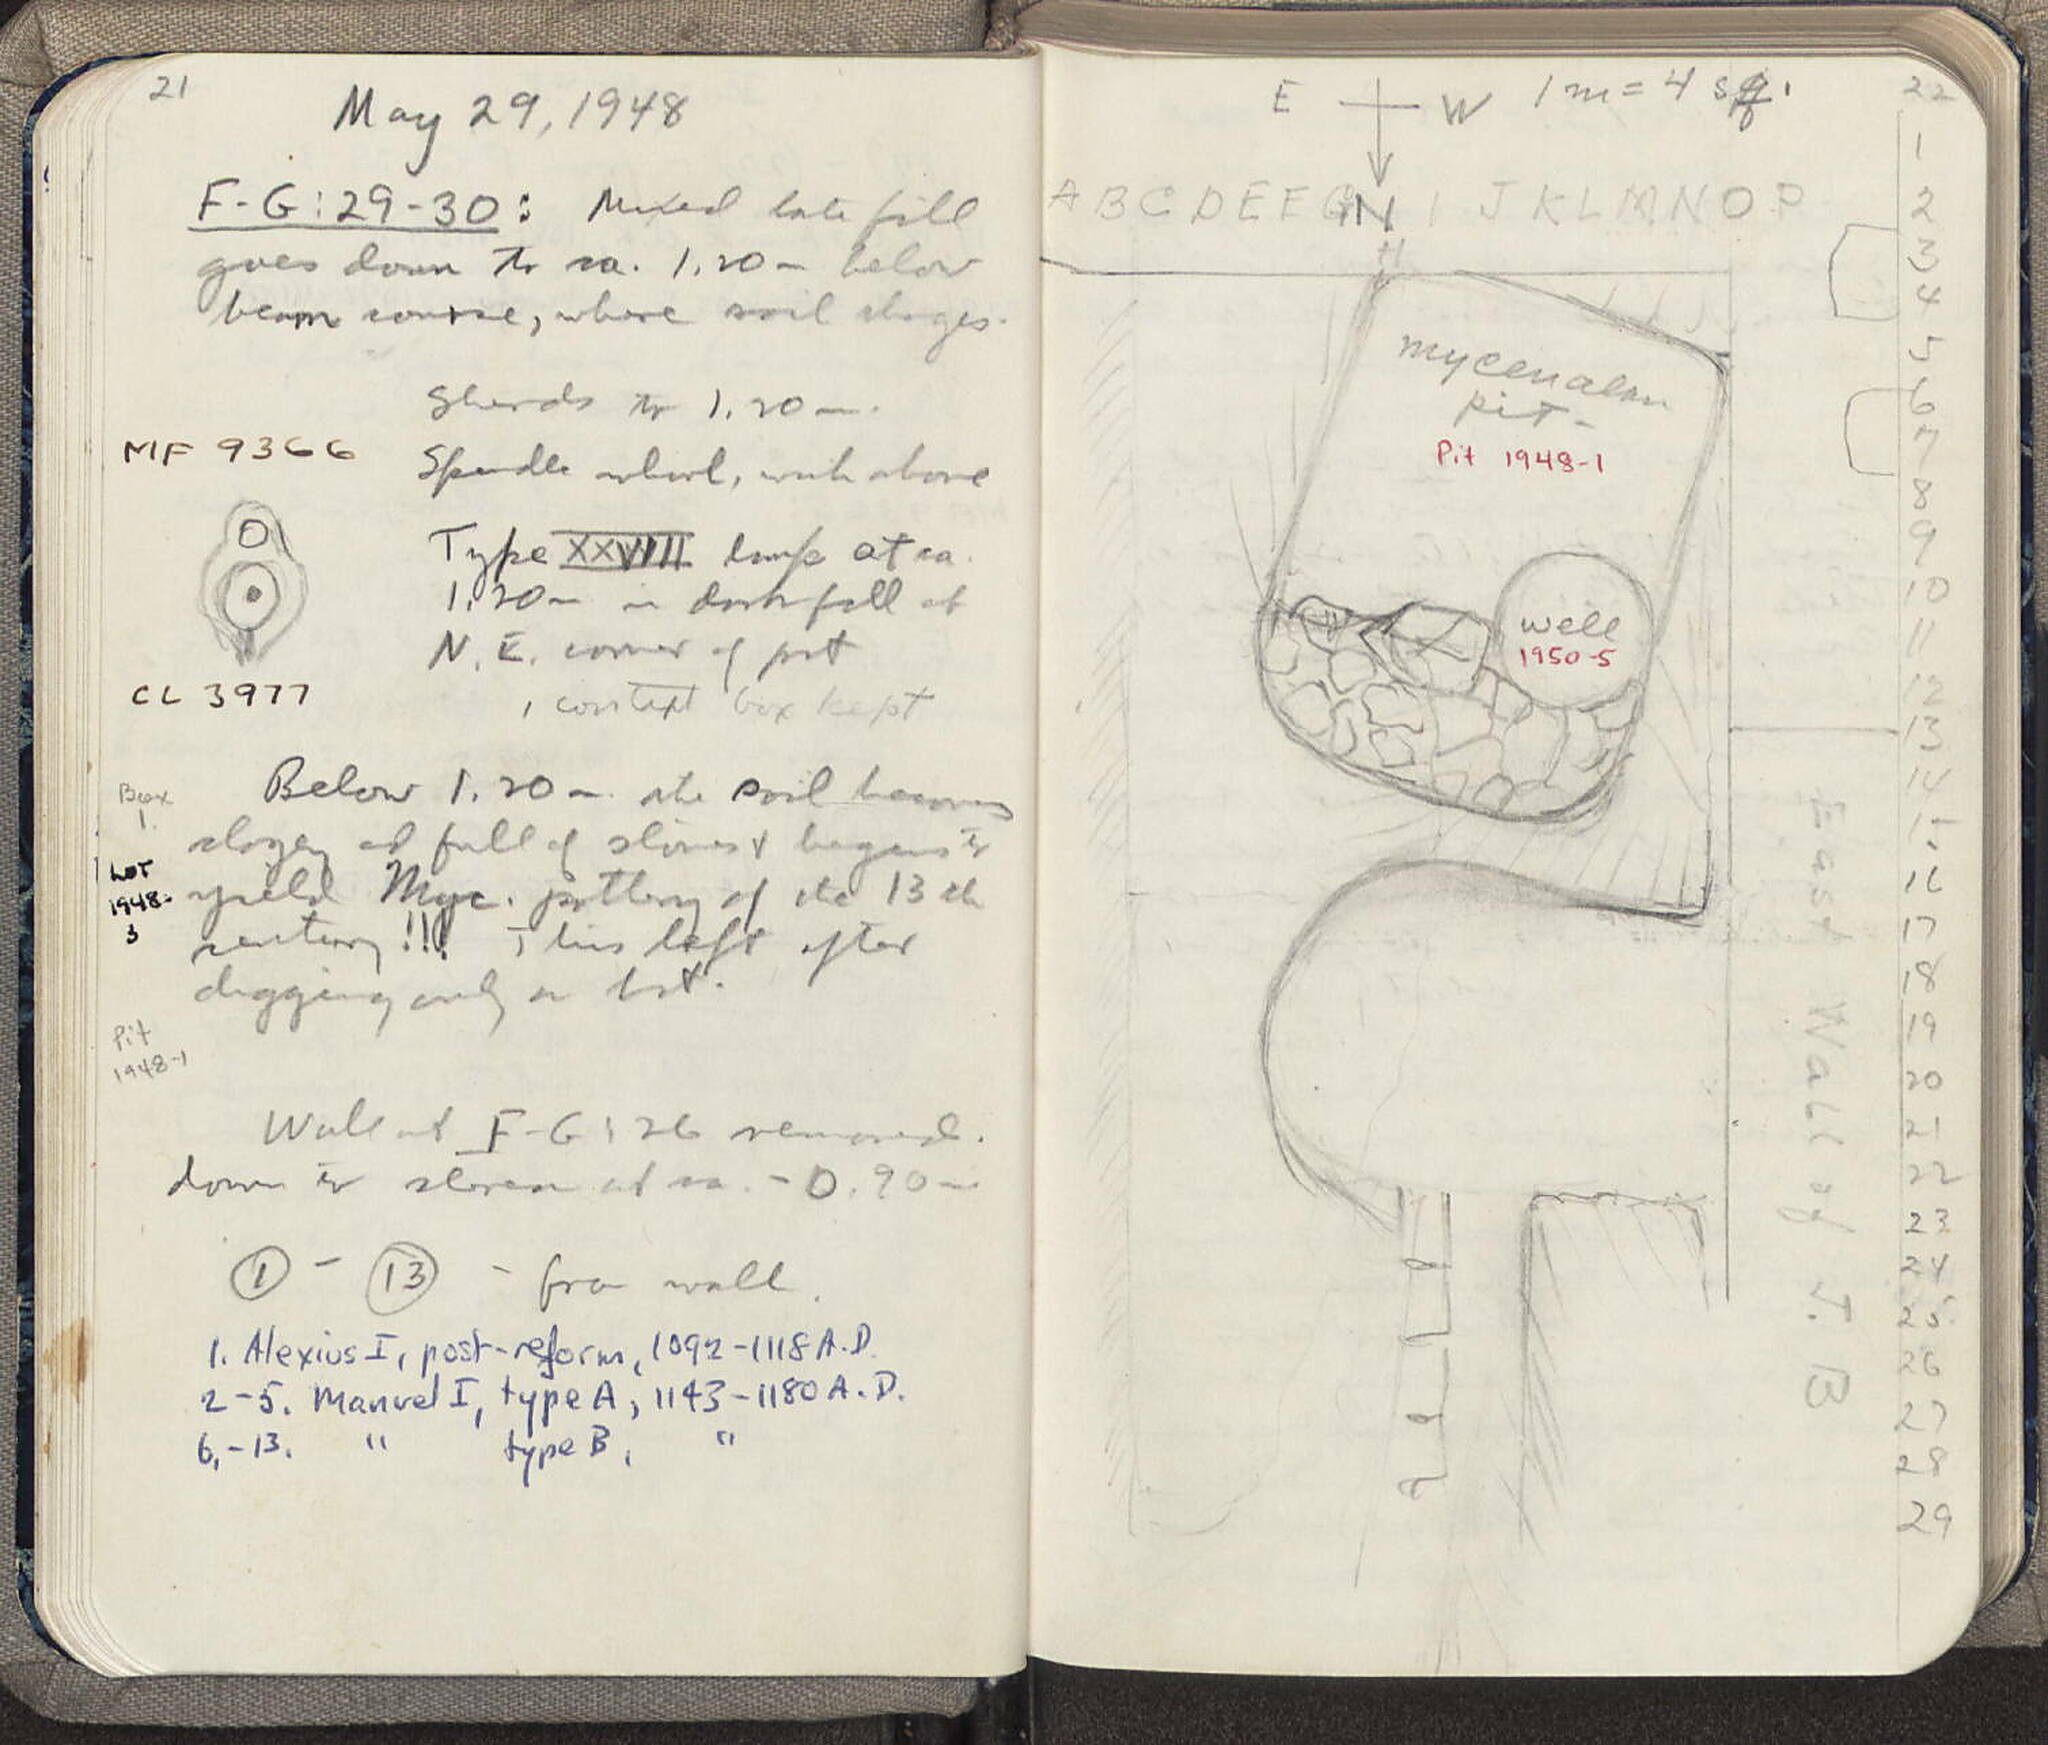 21
May 29, 1948
F-G:29-30: Mixed late fill
goes down to ca. 1.20m below
beam course, where soil changes.
Sherds to 1.20m.
MF 9366
Spindle whorl, with above
Type XXVIII lamp at ca.
1.20m in dark fill at
N.E. corner of pit
CL 3977
1 context box kept
Box
1.
Below 1.20m. the soil becomes
clayey and full of stones & begins to
Lot
1948-
3
yield Myc. pottery of the 13th
century!!! This left after
digging only a bit.
Pit
1948-1
Wall at F-G:26 removed
down to at ca. -0.90m
1 - 13 - from wall.
1. Alexius I, post-reform, 1092-1118 A.D.
2-5. Manuel I, type A, 1143-1180 A.D.
6.-13. " type B, "
22
E W 1m = 4 sq.
N
A B C D E F G H I J K L M N O P
mycenaean
pit-
Pit 1948-1
well
1950-5
East Wall of J. B
1
2
3
4
5
6
7
8
9
10
11
12
13
14
15
16
17
18
19
20
21
22
23
24
25
26
27
28
29